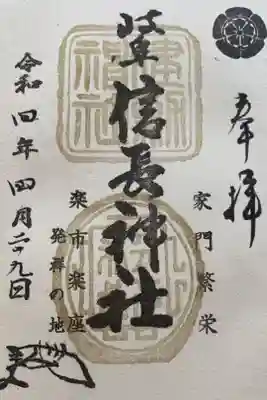 奉拝
家門繁栄
信長神社
楽市楽座
発祥の地
令和四年四月二十九日